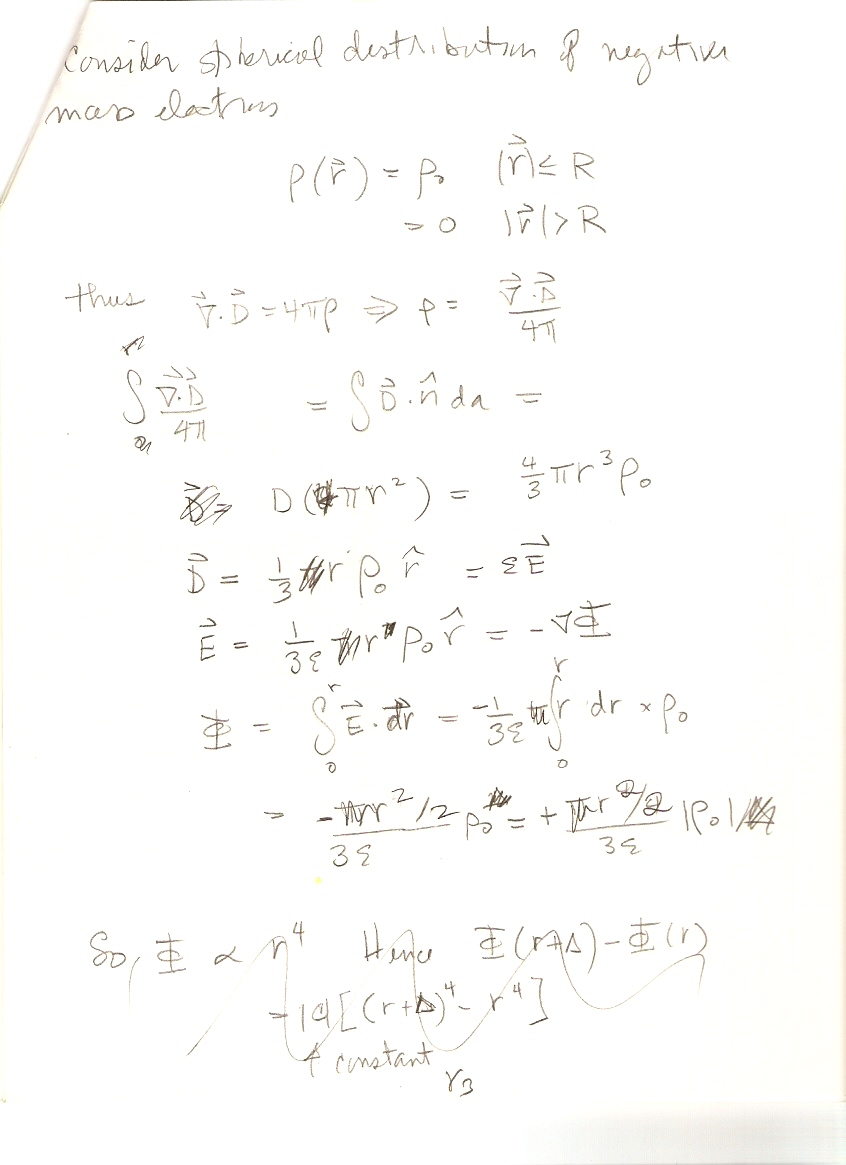 Consider spherical distribution of negative
mass electrons
ρ(r⃗) = ρ₀ |r⃗| ≤ R
= 0 |r⃗| > R
thus ∇⃗·D⃗ = 4πρ ⇒ ρ = ∇⃗·D⃗ / 4π
∫ ∇⃗·D⃗ / 4π = ∫ D⃗·n̂ da =
D(4πr²) = 4/3 πr³ρ₀
D⃗ = 1/3 r ρ₀ r̂ = εE⃗
E⃗ = 1/3ε r ρ₀ r̂ = -∇Φ
Φ = ∫₀ʳ E⃗·dr⃗ = -1/3ε ∫₀ʳ r dr × ρ₀
= - r²/2 / 3ε ρ₀ = + r²/2 / 3ε |ρ₀|
So, Φ ∝ r⁴ Hence Φ(r+Δ) - Φ(r)
= |a|[(r+Δ)⁴ - r⁴]
↑ constant
r₃